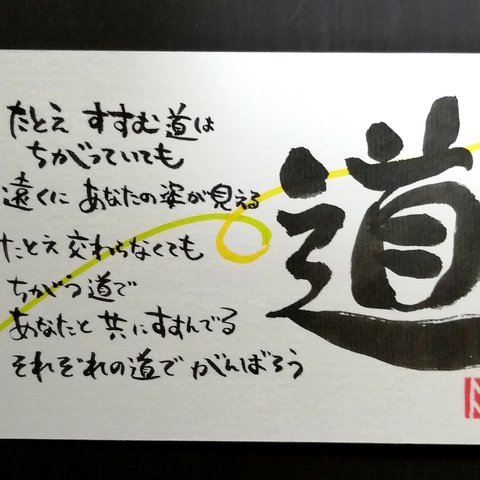 たとえ すすむ道は
ちがっていても
遠くに あなたの姿が見える
たとえ交わらなくても
ちがう道で
あなたと共にすすんでる
それぞれの道で がんばろう
道